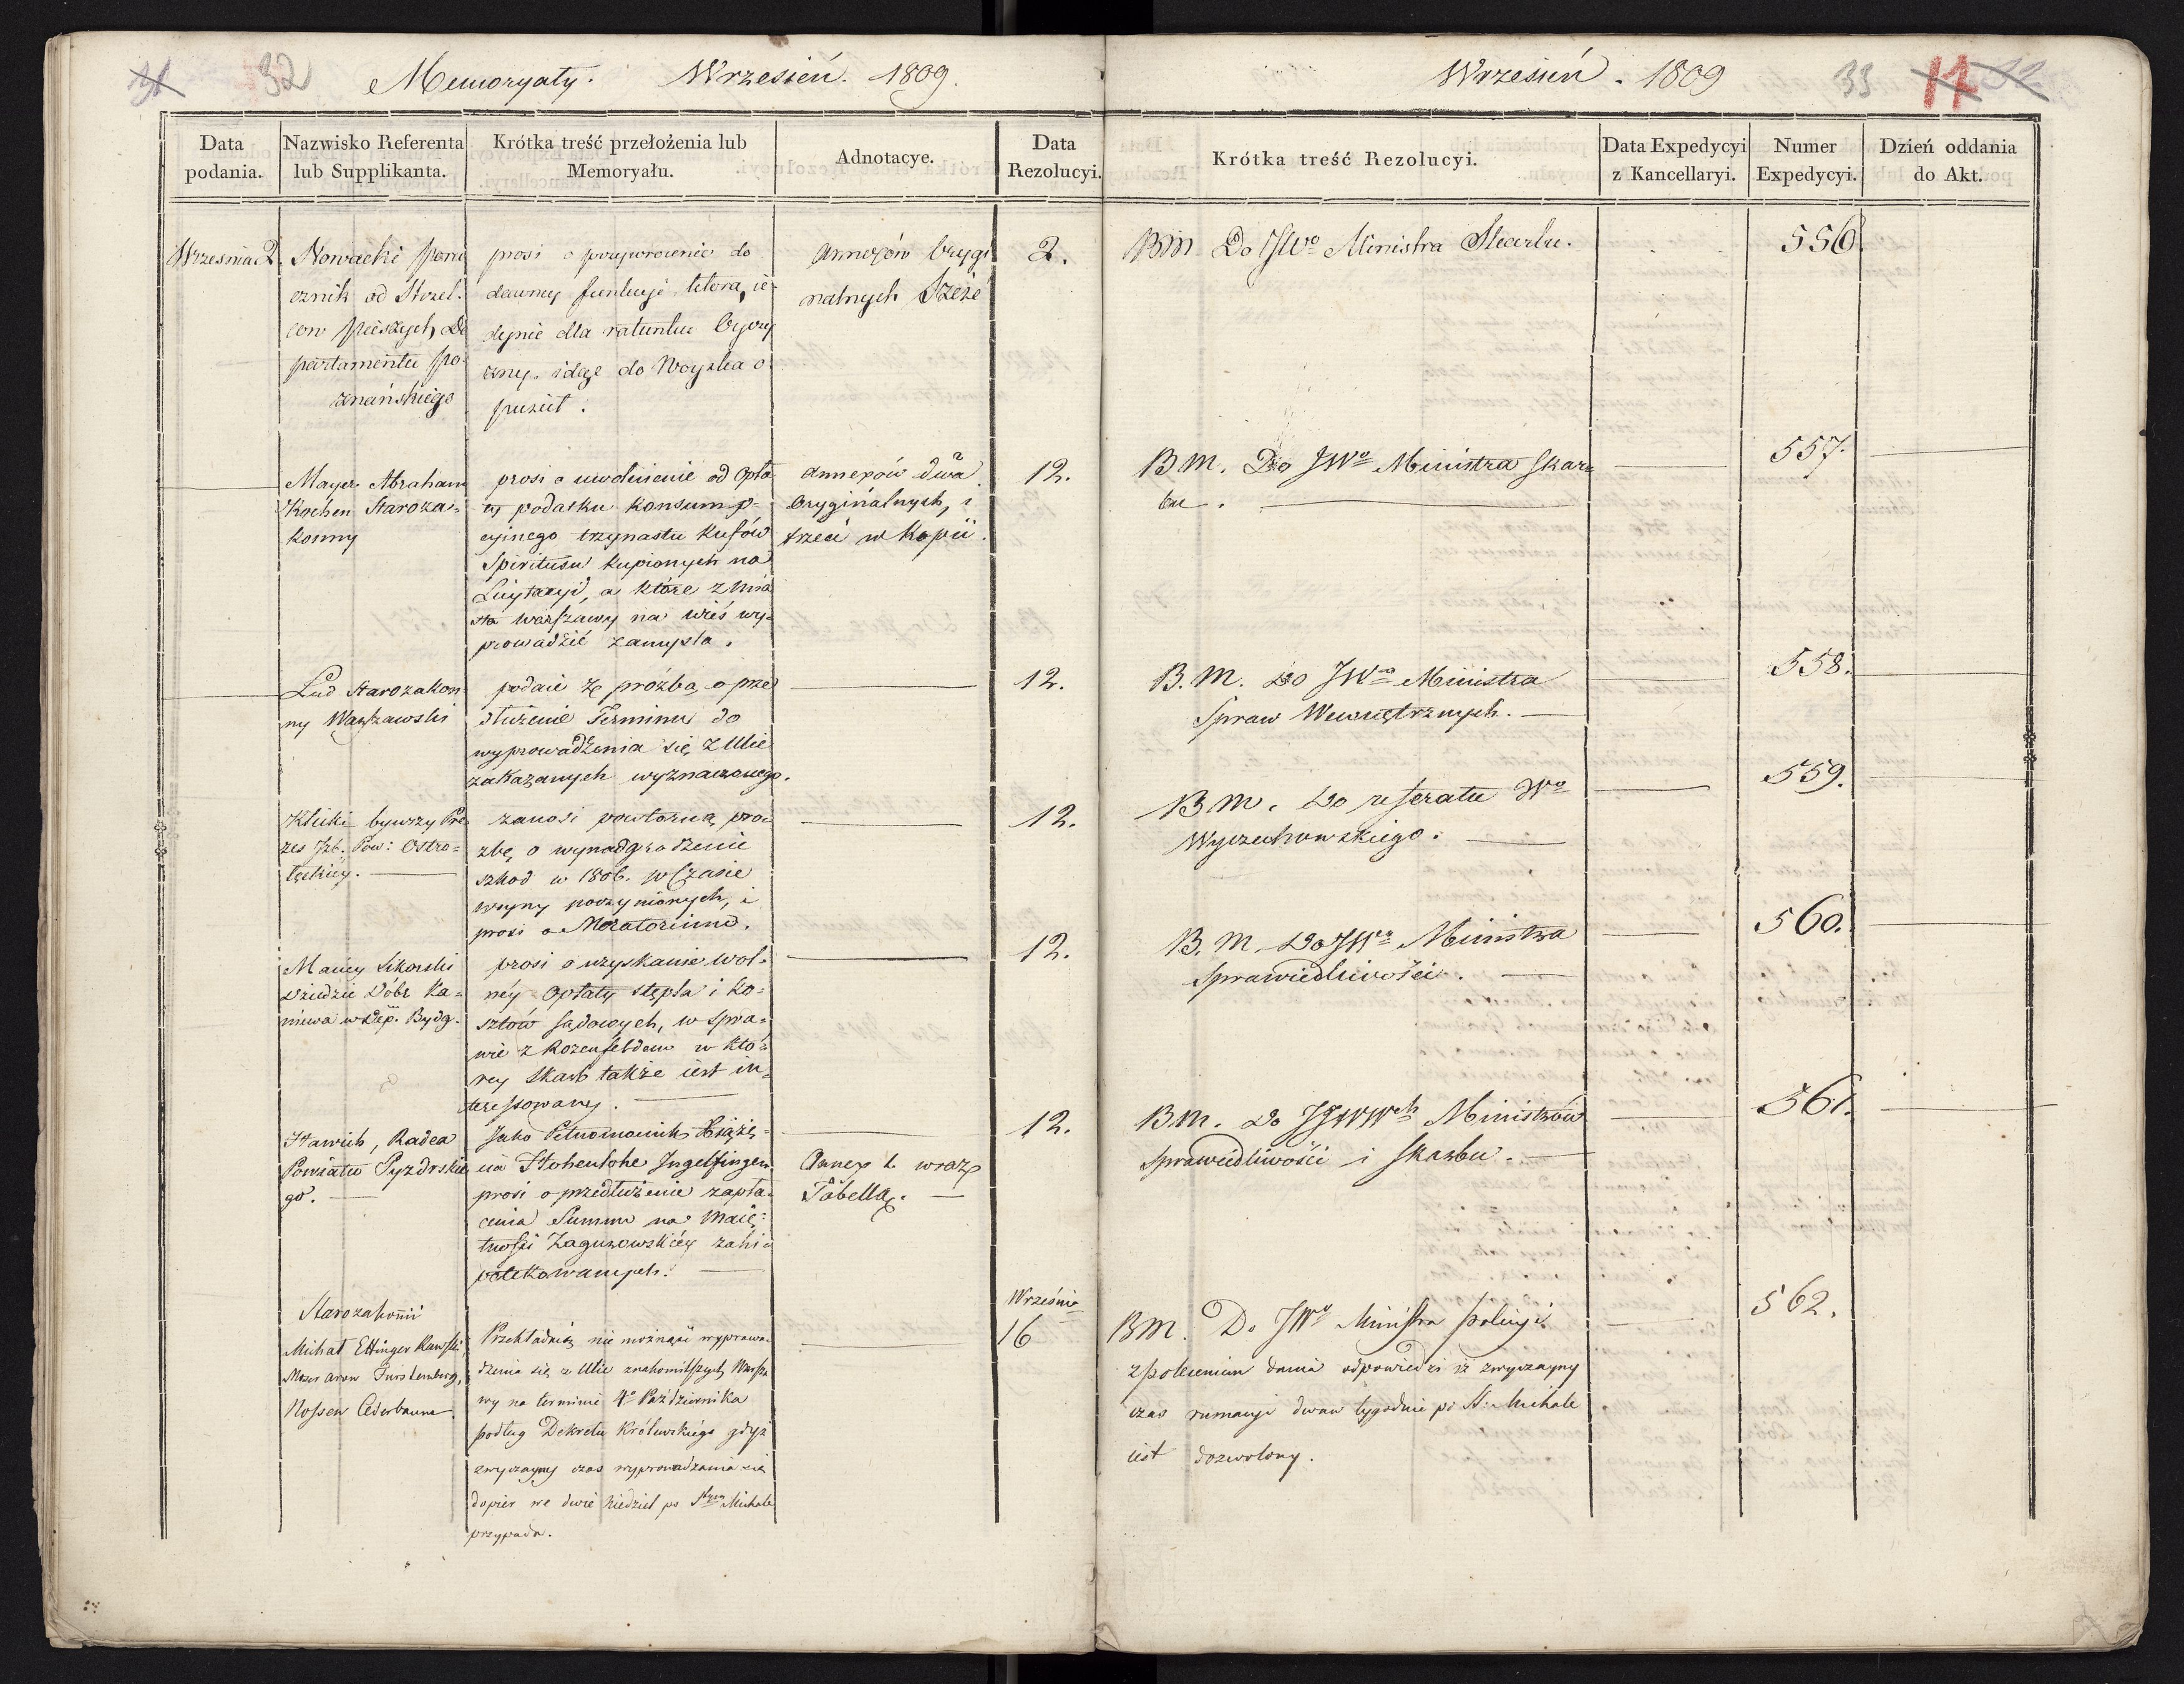 31 32 Memoryały. Wrzesień. 1809.
Wrzesień. 1809 33 11 32
Data podania.
Nazwisko Referenta lub Supplikanta.
Krótka treść przełożenia lub Memoryału.
Adnotacye.
Data Rezolucyi.
Krótka treść Rezolucyi.
Data Expedycyi z Kancellaryi.
Numer Expedycyi.
Dzień oddania do Akt.
Września 2.
Nowacki Poru
cznik od Strzel-
cow pieszych De
partamentu Po-
znańskiego
prosi o przywrocenie do
dawney funkcyi którą ie-
dynie dla ratunku Oyczy
zny, idąc do Woyska o-
puścił.
Annexów Orygi
nalnych Sześć
2.
BM Do JWo Ministra Skarbu.
556.
Mayer Abraham
Kochen Staroza-
konny
prosi o uwolnienie od Opła
ty podatku konsump-
cyinego trzynastu kufów
Spiritusu kupionych na
Licytacyi, a które z Mia
sta Warszawy na wieś wy-
prowadzić zamysla.
Annexów dwa
Oryginalnych, i
trzeci w Kopii.
12.
BM. Do JWo Ministra Skar
bu.
557.
Lud Starozakon
ny Warszawski
podaie Ię prózbą o prze
dłużenie Terminu do
wyprowadzenia się z Ulic
zakazanych wyznaczonego.
12.
B.M. Do JWo Ministra
Spraw Wewnętrznych.
558.
Klicki bywszy Pre
zes Izb. Pow: Ostro-
łęckiey.
zanosi powtorną proź
zbę o wynadgrodzenie
szkod w 1806. w Czasie
woyny poczynionych, i
prosi o Moratorium.
12.
BM. Do referatu Wo
Wyczechowskiego.
559.
Maciey Sikorski
Dziedzic Dóbr Ka-
niewa w Dep. Bydg.
prosi o uzyskanie wol-
néy Opłaty stępla i Ko-
sztów sądowych, w spra-
wie z Rozenfeldem w któ-
rey Skarb także iest in-
teressowany.
12.
B.M. Do JWo Ministra
Sprawiedliwości.
560.
Stawich, Radca
Powiatu Pyzdrskie
go.
Jako Pełnomocnik Xiążę-
cia Hohenlohe Ingelfingen
prosi o przedłużenie zapła-
cenia Summ na Maię-
tności Zagurowskiéy zahi-
potekowanych.
Annex 1. wraz z
Tabellą.
12.
BM. Do JJWWch Ministrów
Sprawiedliwości i Skarbu.
561.
Starozakonni
Michał Ettinger Rawski,
Mozes Aron Furstemberg,
Nossen Cederbaum.
Przekładaią nie możność wyprowa-
dzenia się z Ulic znakomitszych Warsza
wy na terminie 4o Października
podług Dekretu Królewskiego gdyż
zwyczayny czas wyprowadzania się
dopier we dwie Niedziel po Stym Michale
przypada.
Września
16
BM. Do JWo Ministra Policyi
z poleceniem dania odpowiedzi iż zwyczayny
czas rumacyi dwuw tygodnie po St. Michale
iest dozwolony.
562.